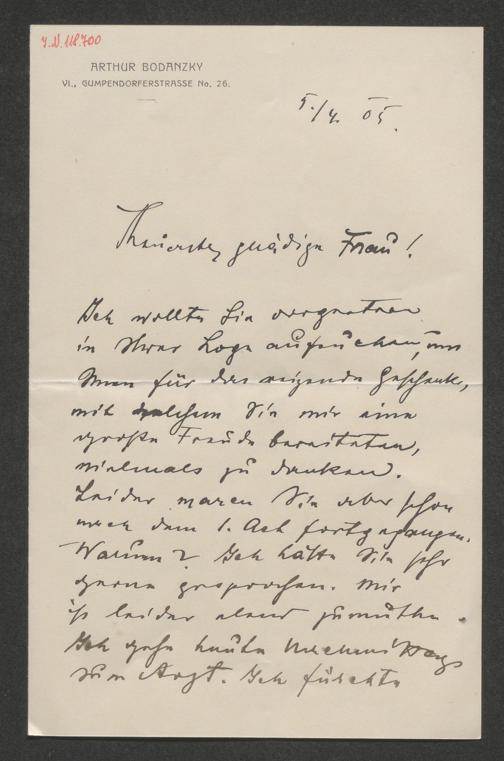 I.N. 118.700
ARTHUR BODANZKY
VI., GUMPENDORFERSTRASSE No. 26.
5./4. 05.
Theuerste, gnädige Frau!
Ich wollte Sie vorgestern
in Ihrer Loge aufsuchen, um
Ihnen für das reizende Geschenk,
mit welchem Sie mir eine
große Freude bereiteten,
vielmals zu danken.
Leider waren Sie aber schon
nach dem 1. Act fortgegangen.
Warum? Ich hätte Sie sehr
gerne gesprochen. Mir
ist leider elend zumuthe.
Ich gehe heute Nachmittags
zum Arzt. Ich fürchte